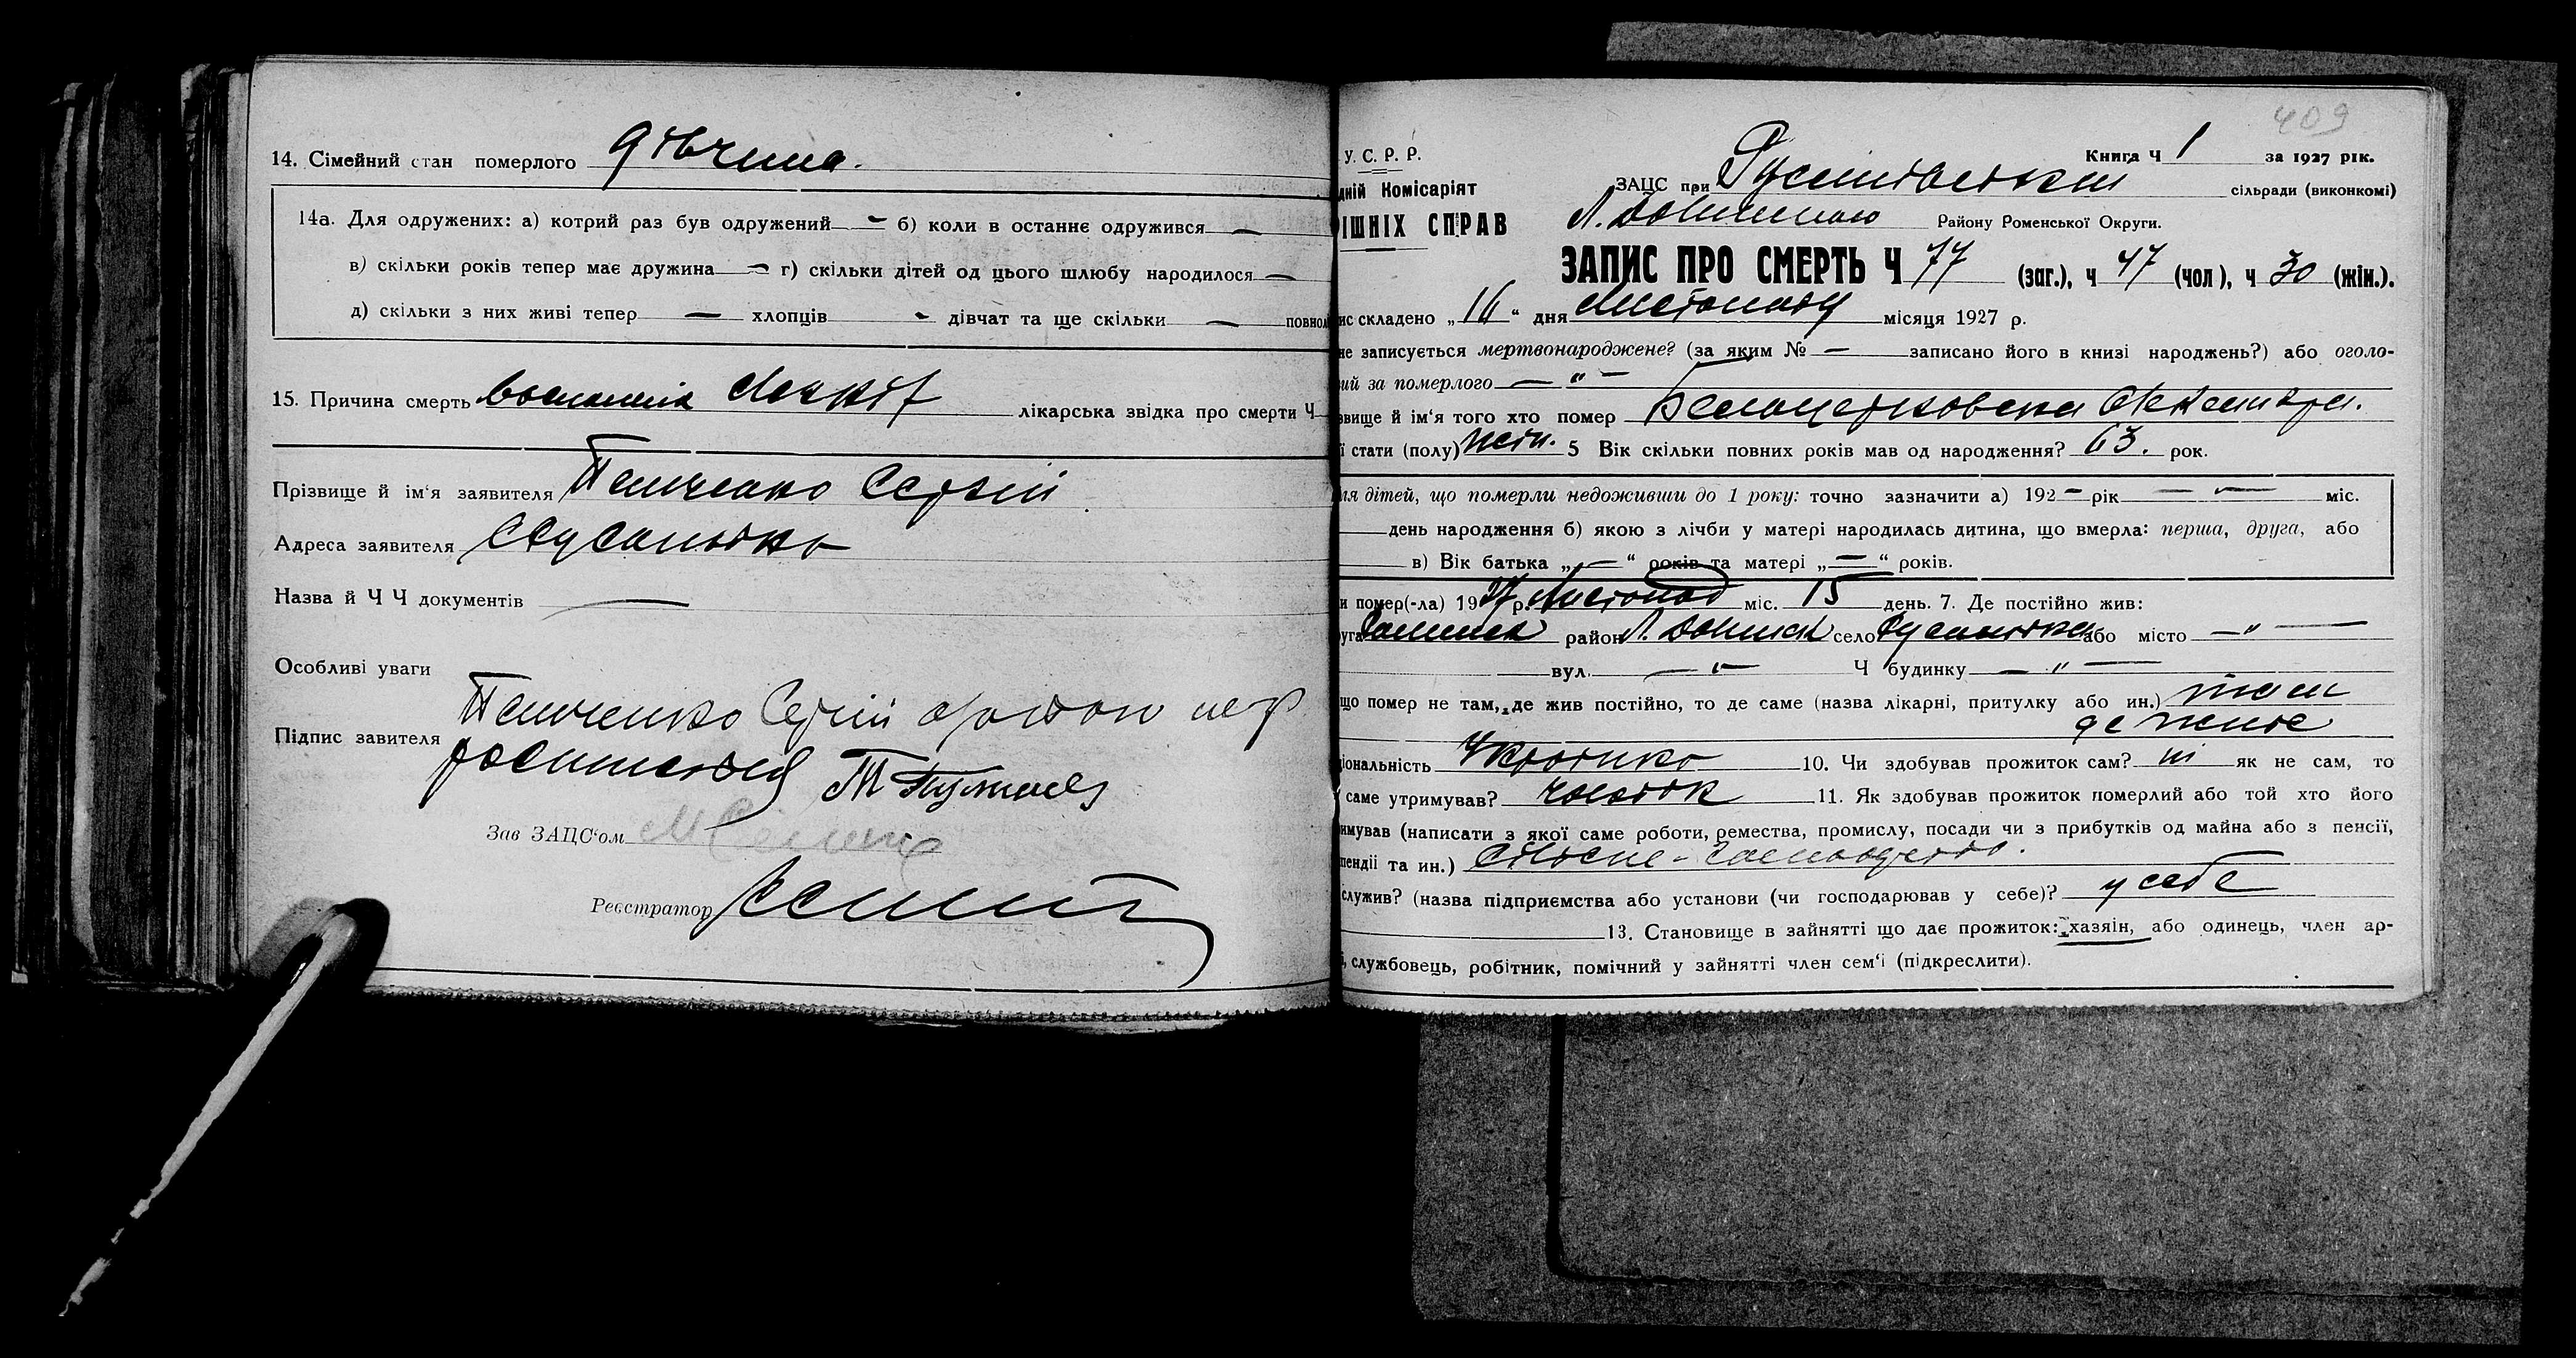 14. Сімейний стан померлого дівчина.
14а. Для одружених: а) котрий раз був одружений — б) коли в останнє одружився —
в) скільки років тепер має дружина — г) скільки дітей од цього шлюбу народилося —
д) скільки з них живі тепер — хлопців - дівчат та ще скільки — повнол
15. Причина смерть лікарська звідка про смерти Ч
Прізвище й ім'я заявителя Панченко Сергій
Адреса заявителя
Назва й Ч Ч документів —
Особливі уваги
Панченко Сергій
Підпис завителя
Зав ЗАЦС'ом
Реєстратор
409
У. С. Р. Р.
Книга Ч 1 за 1927 рік.
дній Комісаріят
ЗАЦС при сільради (виконкомі)
ІШНІХ СПРАВ
Району Роменської Округи.
ЗАПИС ПРО СМЕРТЬ Ч 77 (заг.), ч 47 (чол), ч 30 (жін.).
ис складено „16“ дня Листопаду місяця 1927 р.
не записується мертвонароджене? (за яким № — записано його в книзі народжень?) або оголо-
ий за померлого — " —
звище й ім'я того хто помер Белоцерковска Олександра.
ї стати (полу) жін. 5 Вік скільки повних років мав од народження? 63. рок.
ля дітей, що померли недоживши до 1 року: точно зазначити а) 192 - рік — — міс.
день народження б) якою з лічби у матері народилась дитина, що вмерла: перша, друга, або
в) Вік батька „—“ років та матері „—“ років.
и помер(-ла) 1927 р. Листопад міс. 15 день. 7. Де постійно жив:
уга район село або місто — " —
вул. — " — Ч будинку — " —
що помер не там, де жив постійно, то де саме (назва лікарні, притулку або ин.) там
де жиие
ціональність Українка 10. Чи здобував прожиток сам? ні як не сам, то
саме утримував? чоловік 11. Як здобував прожиток померлий або той хто його
имував (написати з якої саме роботи, ремества, промислу, посади чи з прибутків од майна або з пенсії,
пендії та ин.) Сільске-господарство.
служив? (назва підприємства або установи (чи господарював у себе)? у себе
13. Становище в зайнятті що дає прожиток: хазяїн, або одинець, член ар-
, службовець, робітник, помічний у зайнятті член сем'ї (підкреслити).